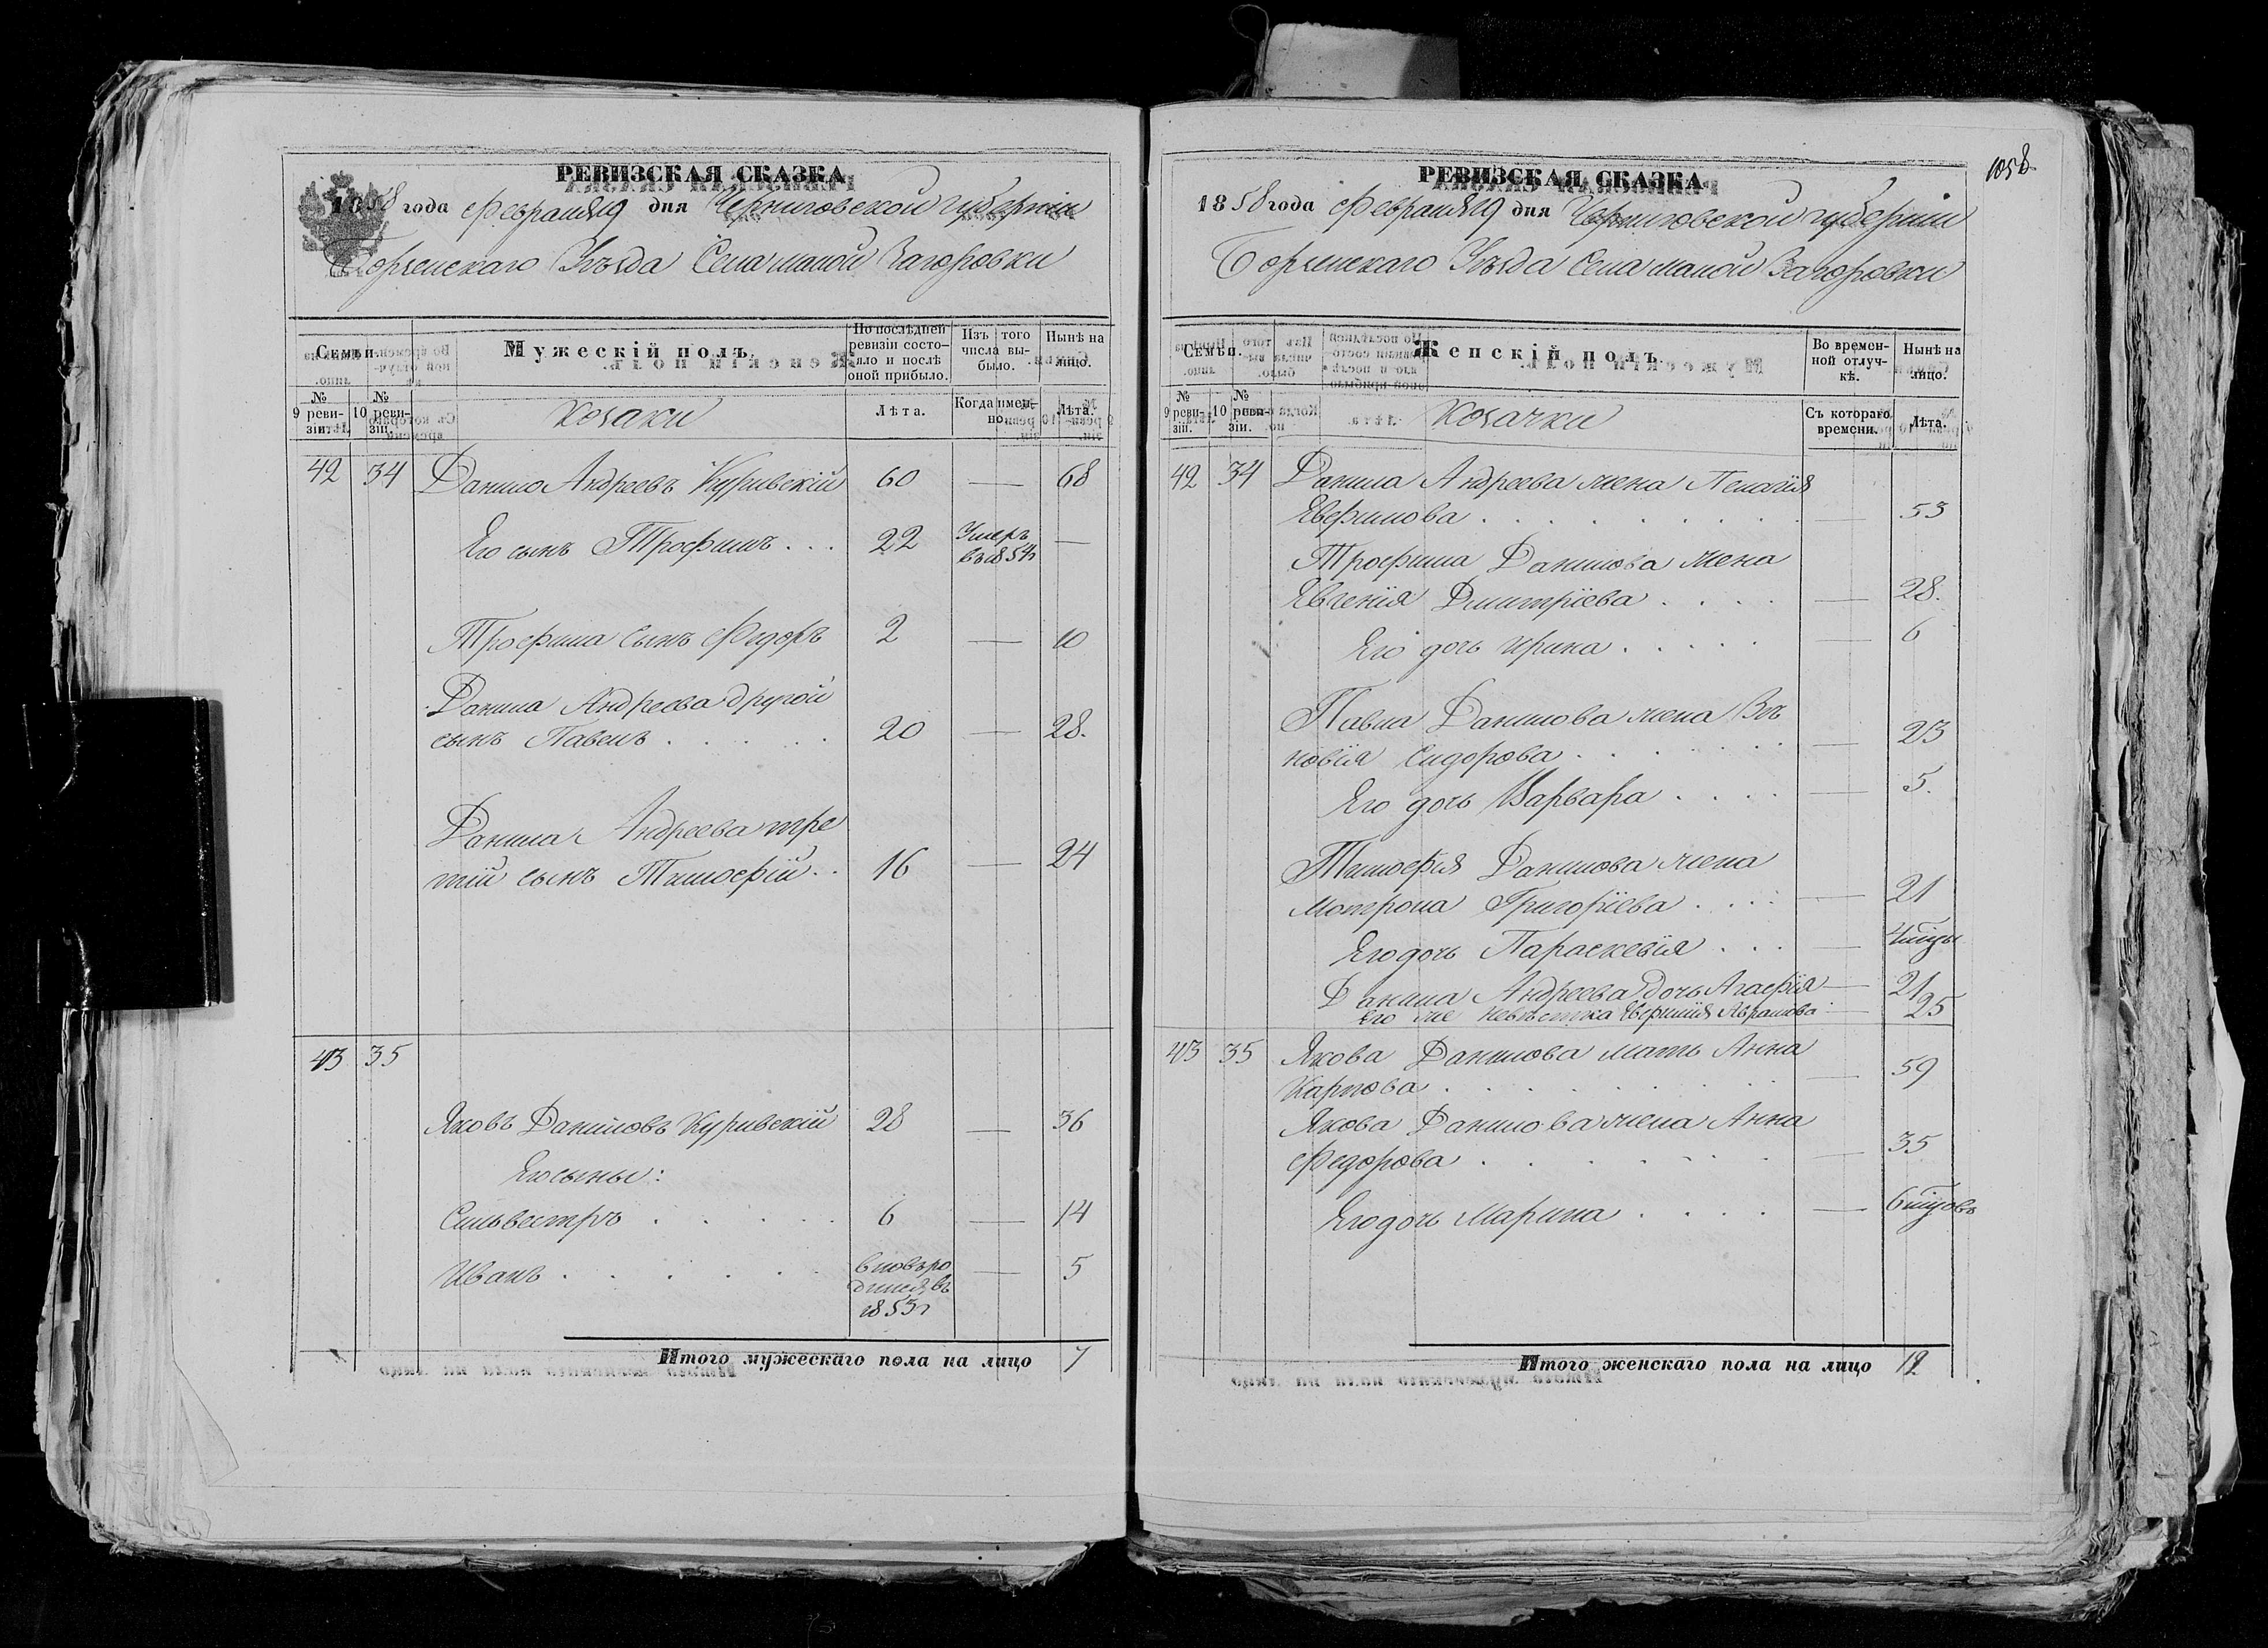 РЕВИЗСКАЯ СКАЗКА
1858 года Февраля 19 дня Черниговской губернiи
Борзенскаго Уѣзда Села малой Загоровки
Семьи.
Мужескiй полъ.
По послѣдней ревизiи состояло и послѣ оной прибыло.
Изъ того числа выбыло.
Нынѣ на лицо.
№ 9 ревизiи.
№ 10 ревизiи.
Козаки
Лѣта.
Когда именно.
Лѣта.
42 34 Данило Андреевъ Куривскiй 60 — 68
Его сынъ Трофимъ . . . 22 Умеръ въ 1854г —
Трофима сынъ Федоръ 2 — 10
Данила Андреева другой
сынъ Павелъ . . . . . 20 — 28.
Данила Андреева тре
тiй сынъ Тимофiй . . 16 — 24
43 35
Яковъ Даниловъ Куривскiй 28 — 36
Его сыны:
Сильвестръ . . . . . 6 — 14
Иванъ . . . . . . вновь ро
дился въ
1853г — 5
Итого мужескаго пола на лицо 7
1058
РЕВИЗСКАЯ СКАЗКА
1858 года Февраля 19 дня Черниговской губернiи
Борзенскаго Уѣзда Села малой Загоровки
Семьи.
Женскiй полъ.
Во временной отлучкѣ.
Нынѣ на лицо.
№ 9 ревизiи.
№ 10 ревизiи.
Козачки
Съ котораго времени.
Лѣта.
42 34 Данила Андреева жена Пелагiя
Евфимова . . . . . . . . — 53
Трофима Данилова жена
Евгенiя Дмитрiева . . . . — 28.
Его дочь Ирина . . . . . — 6
Павла Данилова жена Зѣ
новiя Сидорова . . . . . . — 23
Его дочь Варвара . . . . — 5.
Тимофiя Данилова жена
Мотрона Григорiева . . . . — 21
Его дочь Параскевiя . . . — 4 мцы
Данила Андреева дочь Агафiя — 21
Его же невѣстка Евфимiя Аврамова — 25
43 35 Якова Данилова мать Анна
Карпова . . . . . . . . — 59
Якова Данилова жена Анна
Федорова . . . . . . . — 35
Его дочь Марина . . . . — 6 мцовъ
Итого женскаго пола на лицо 12